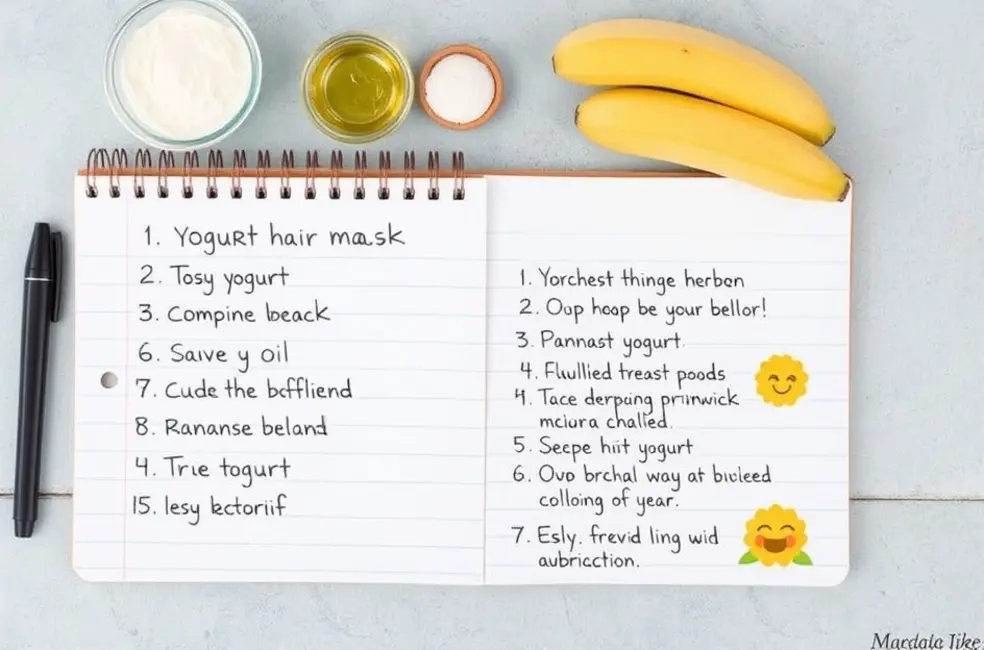 1. Yogurt hair mask
2. Tosy yogurt
3. Compine beack
6. Saive y oil
7. Cude the bcffliend
8. Rananse beland
4. Trie togurt
15. lesy lectoriif
1. Yorchest thinge herbon
2. Oop hoop be your bellor!
3. Pannast yogurt
4. Flullied treast poods
4. Tace derpaing prinwick
mclura challed.
5. Secpe hiit yogurt
6. Ovo brchal way at bivleed
colloing of year.
7. Esly. frevid ling wid
aubriccction.
Mardaia Jike